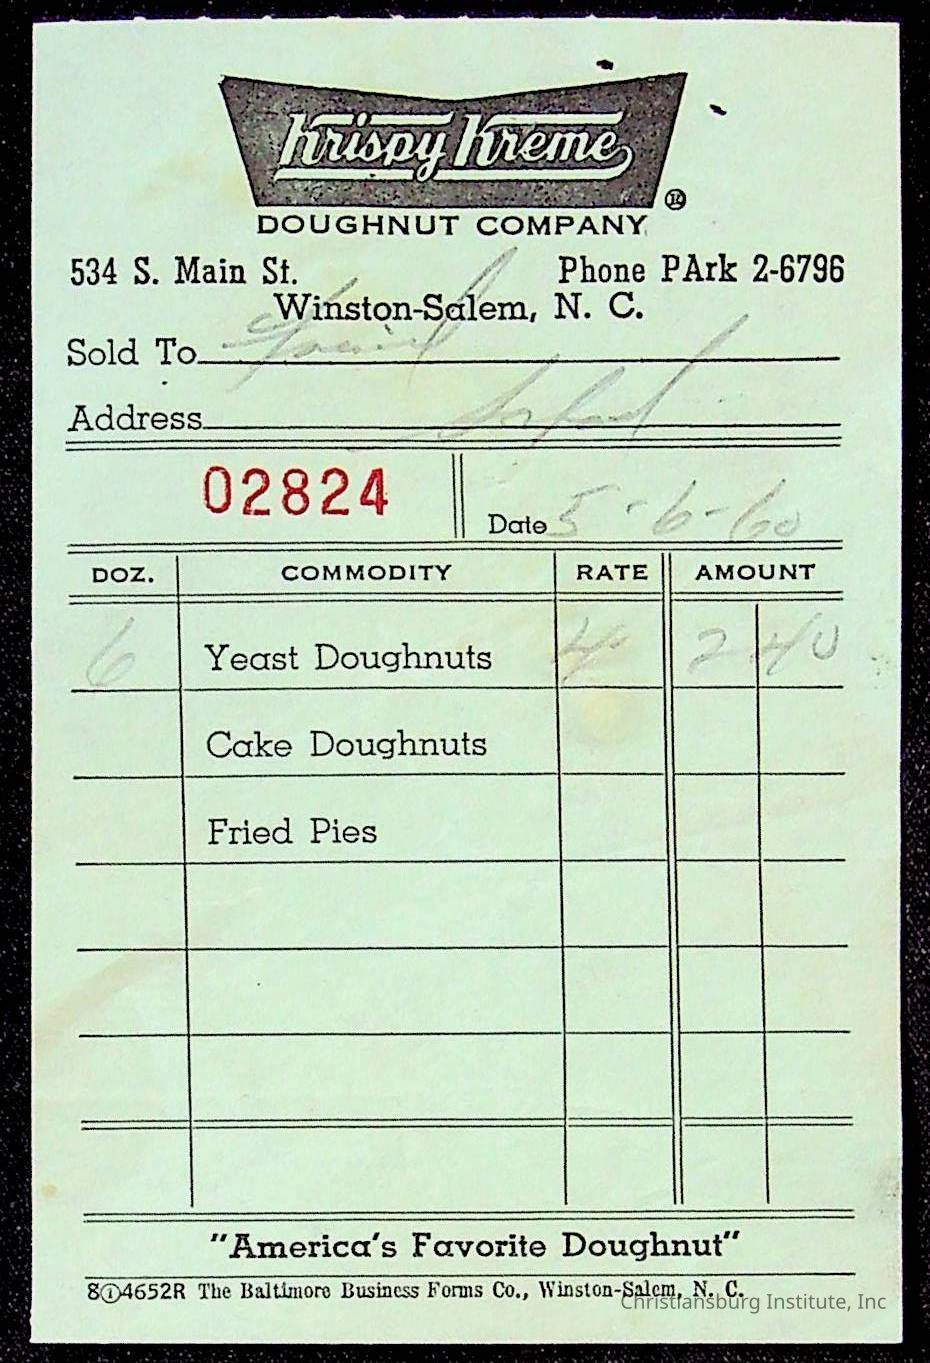 Krispy Kreme
®
DOUGHNUT COMPANY
534 S. Main St. Phone PArk 2-6796
Winston-Salem, N. C.
Sold To
Address
02824 Date 5-6-60
DOZ. COMMODITY RATE AMOUNT
6 Yeast Doughnuts 4 2 40
Cake Doughnuts
Fried Pies
"America's Favorite Doughnut"
8 1 4652R The Baltimore Business Forms Co., Winston-Salem, N. C.
Christiansburg Institute, Inc